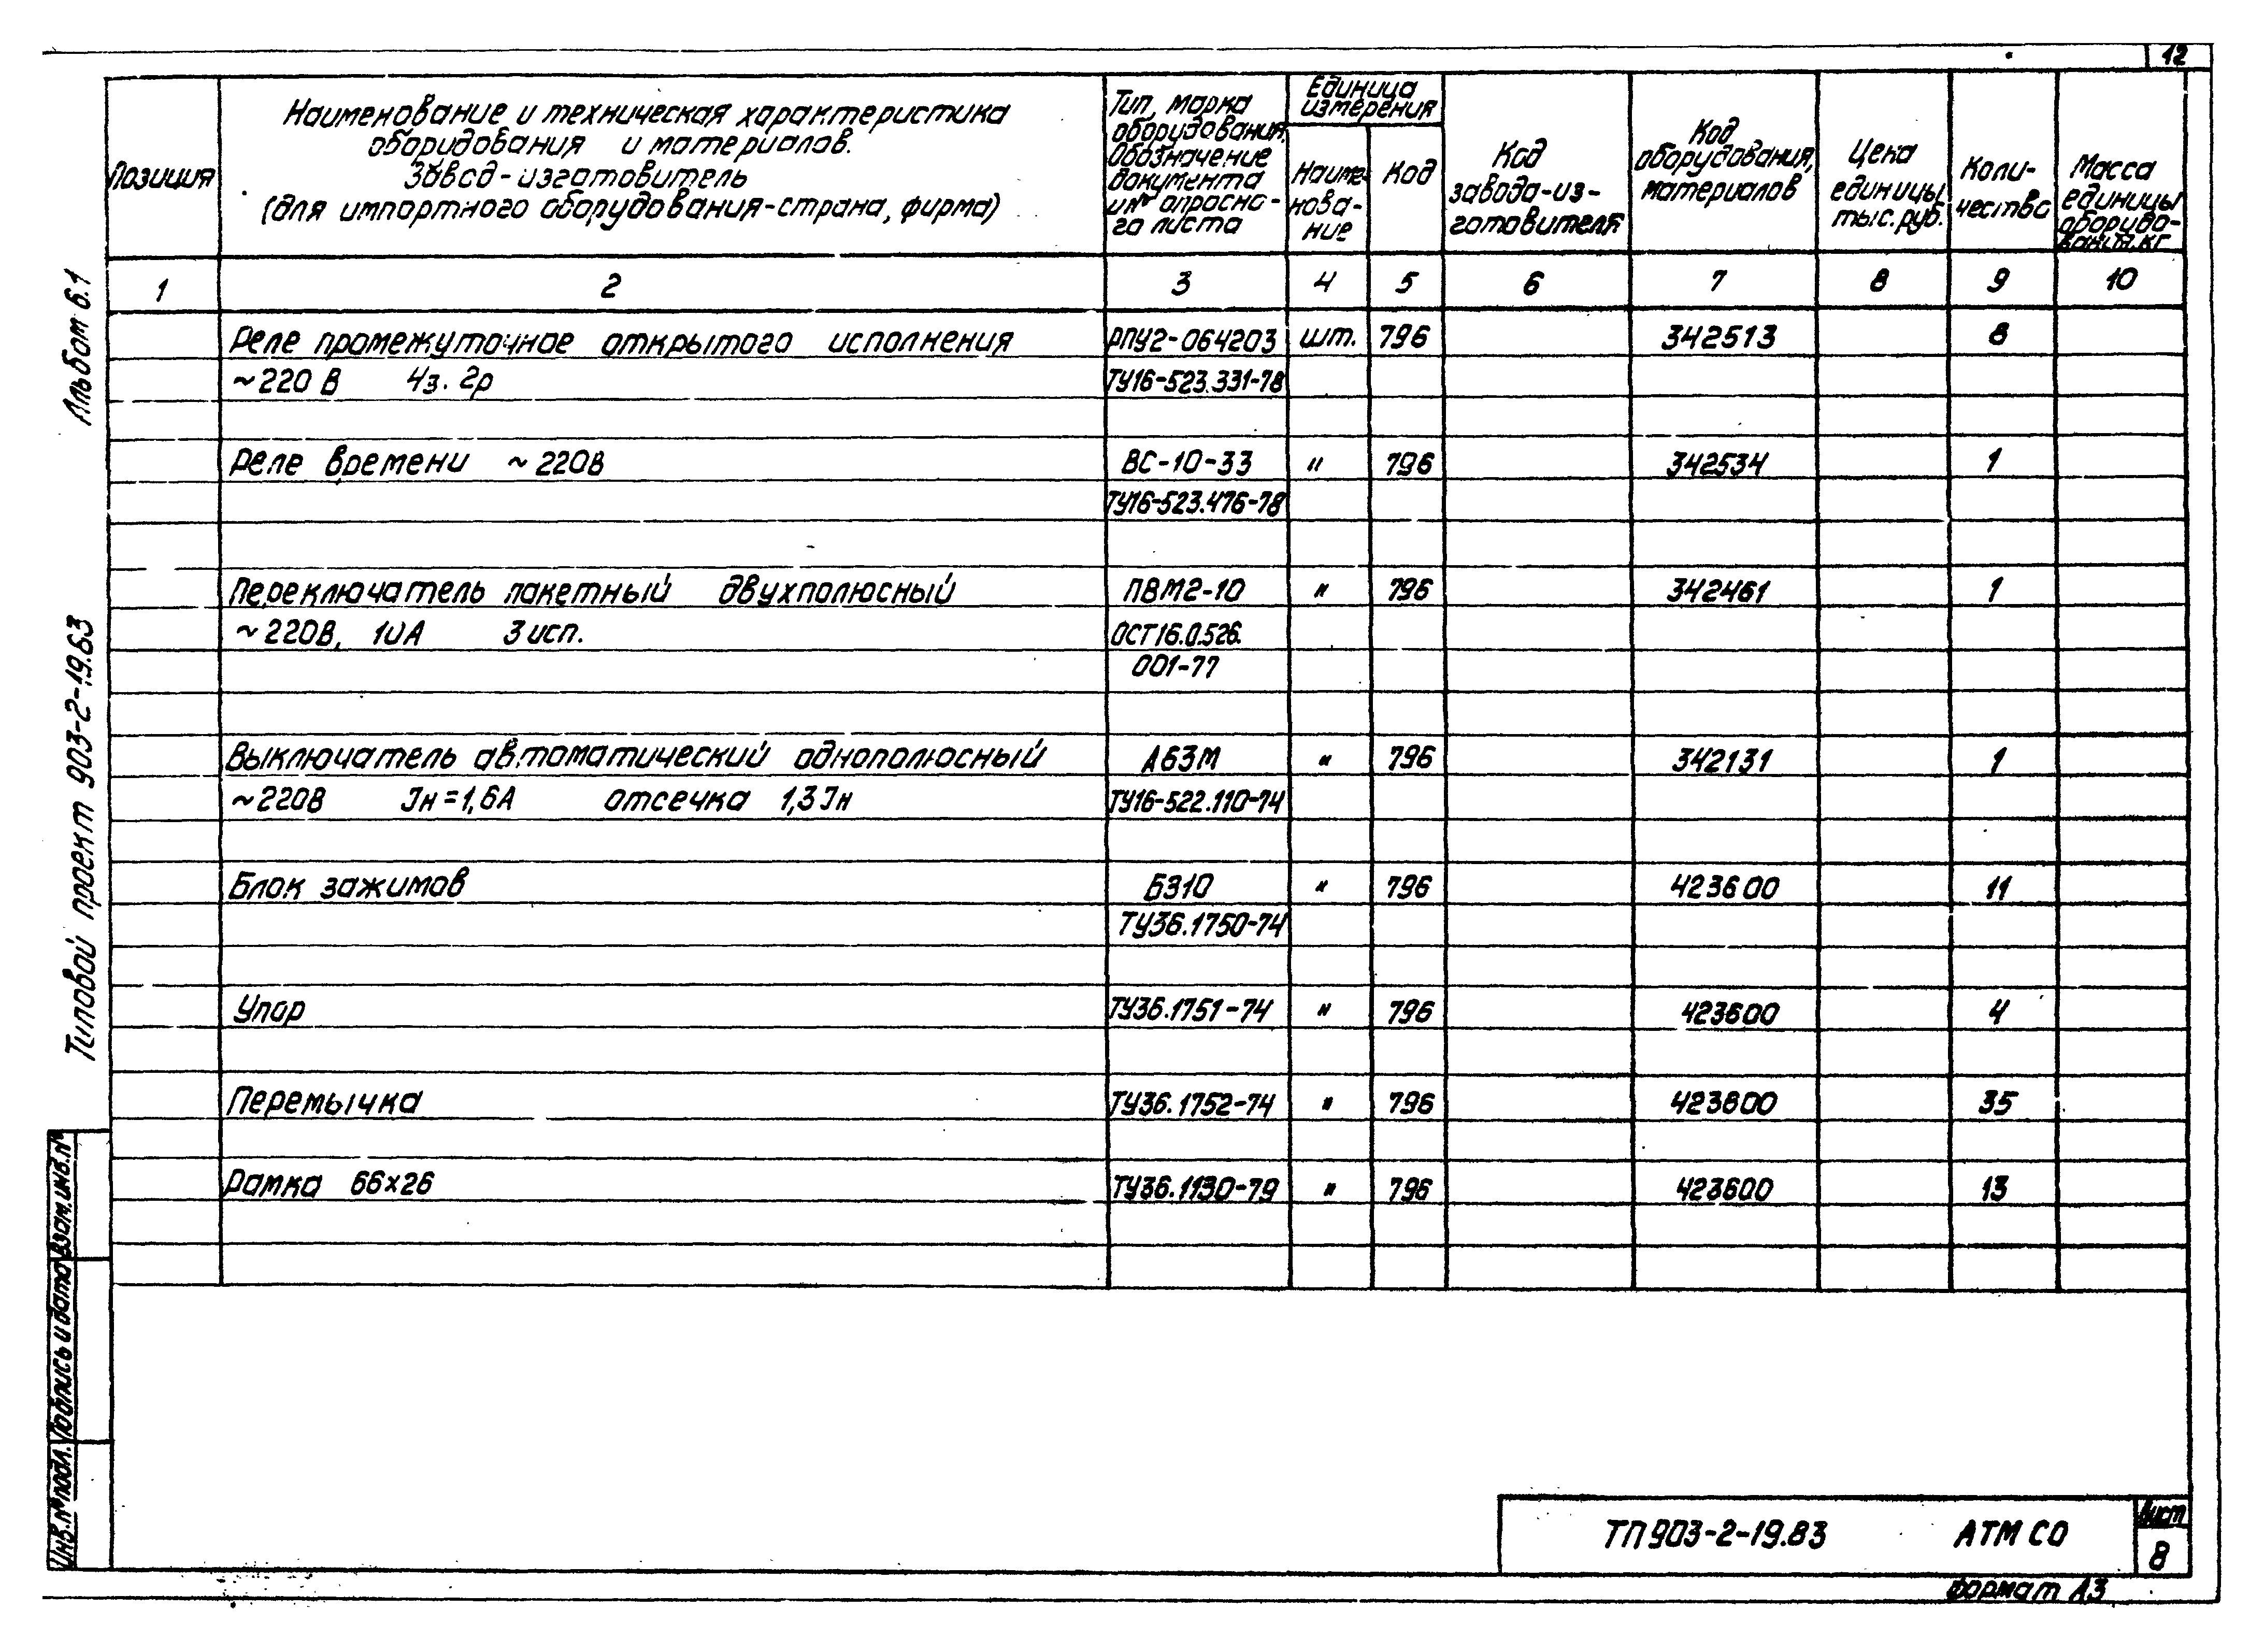 12
Позиция
Наименование и техническая характеристика
оборудования и материалов.
Завод-изготовитель
(для импортного оборудования-страна, фирма)
Тип, марка
оборудования,
Обозначение
документа
и № опросно-
го листа
Единица
измерения
Наиме-
нова-
ние
Код
Код
завода-из-
готовителя
Код
оборудования,
материалов
Цена
единицы,
тыс.руб.
Коли-
чество
Масса
единицы
оборудо-
вания.кг
1 2 3 4 5 6 7 8 9 10
Реле промежуточное открытого исполнения РПУ2-064203 шт. 796 342513 8
~220 В 4з. 2р ТУ16-523.331-78
Реле времени ~220В ВС-10-33 " 796 342534 1
ТУ16-523.476-78
Переключатель пакетный двухполюсный ПВМ2-10 " 796 342461 1
~220В, 10А 3 исп. ОСТ16.0.526.
001-77
Выключатель автоматический однополюсный А63М " 796 342131 1
~220В Jн=1,6А отсечка 1,3Jн ТУ16-522.110-74
Блок зажимов БЗ10 " 796 423600 11
ТУ36.1750-74
Упор ТУ36.1751-74 " 796 423600 4
Перемычка ТУ36.1752-74 " 796 423600 35
Рамка 66х26 ТУ36.1130-79 " 796 423600 13
Альбом 6.1
Типовой проект 903-2-19.83
Взам.инв.№
Подпись и дата
Инв.№ подл.
ТП 903-2-19.83 АТМ СО
Лист
8
Формат А3